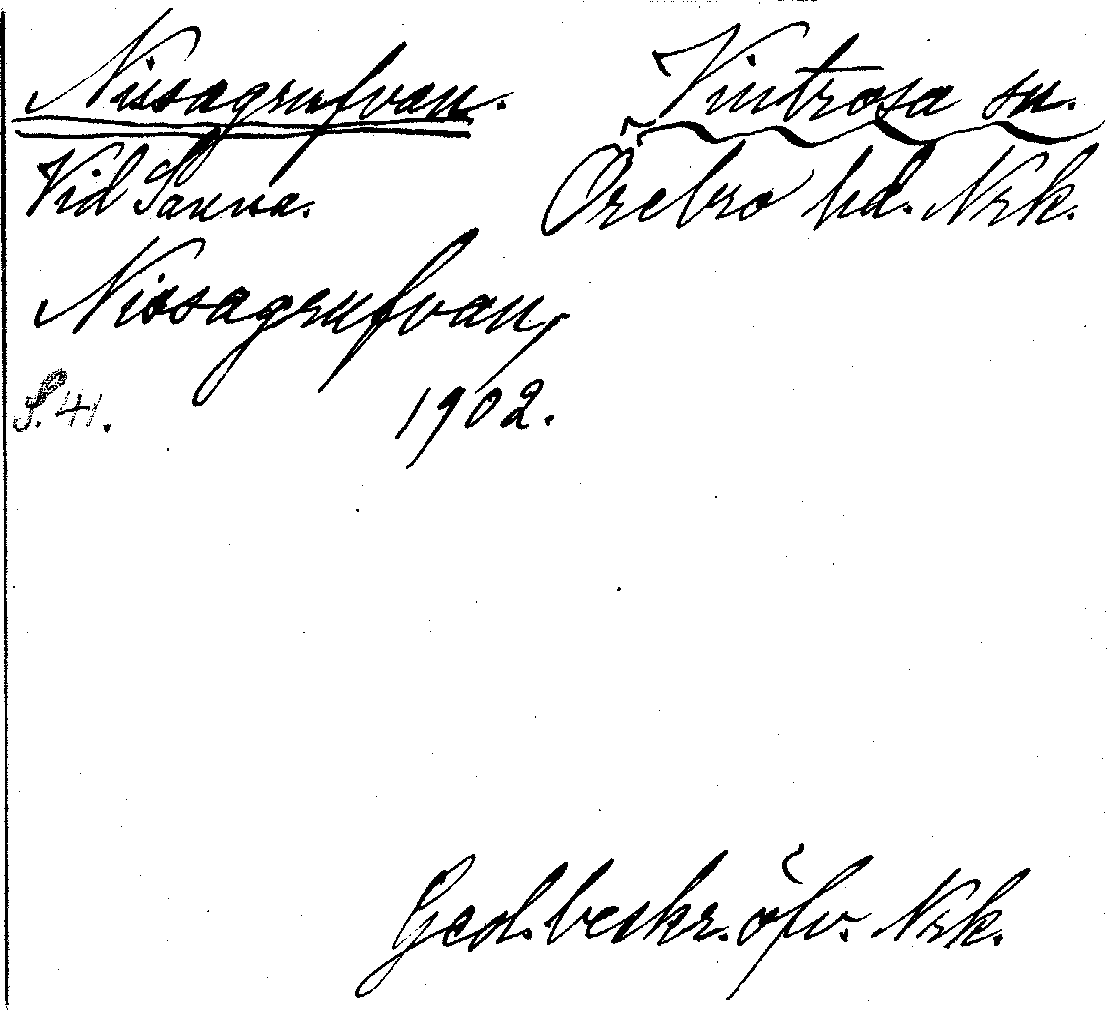 Nissagrufvan. Vintrosa sn.
Vid Sanna. Örebro hd. Nrk.
Nissagrufvan,
S. 41. 1902.
Ged. beskr. öfv. Nrk.